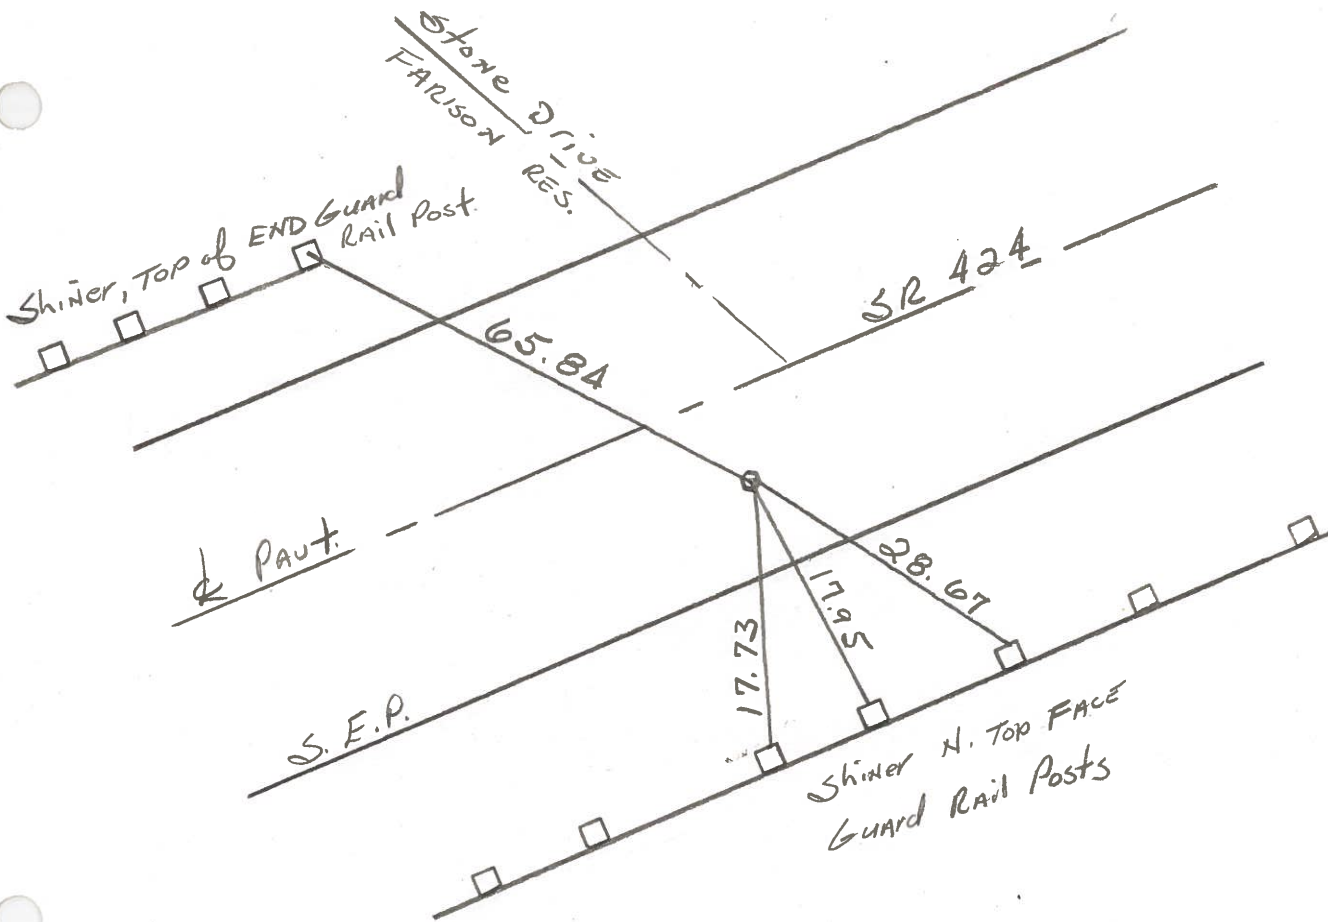 Stone Drive
FARISON RES.
Shiner, Top of END Guard
Rail Post.
65.84
SR 424
℄ Pavt.
28.67
17.95
17.73
S. E.P.
Shiner N. Top FACE
Guard Rail Posts